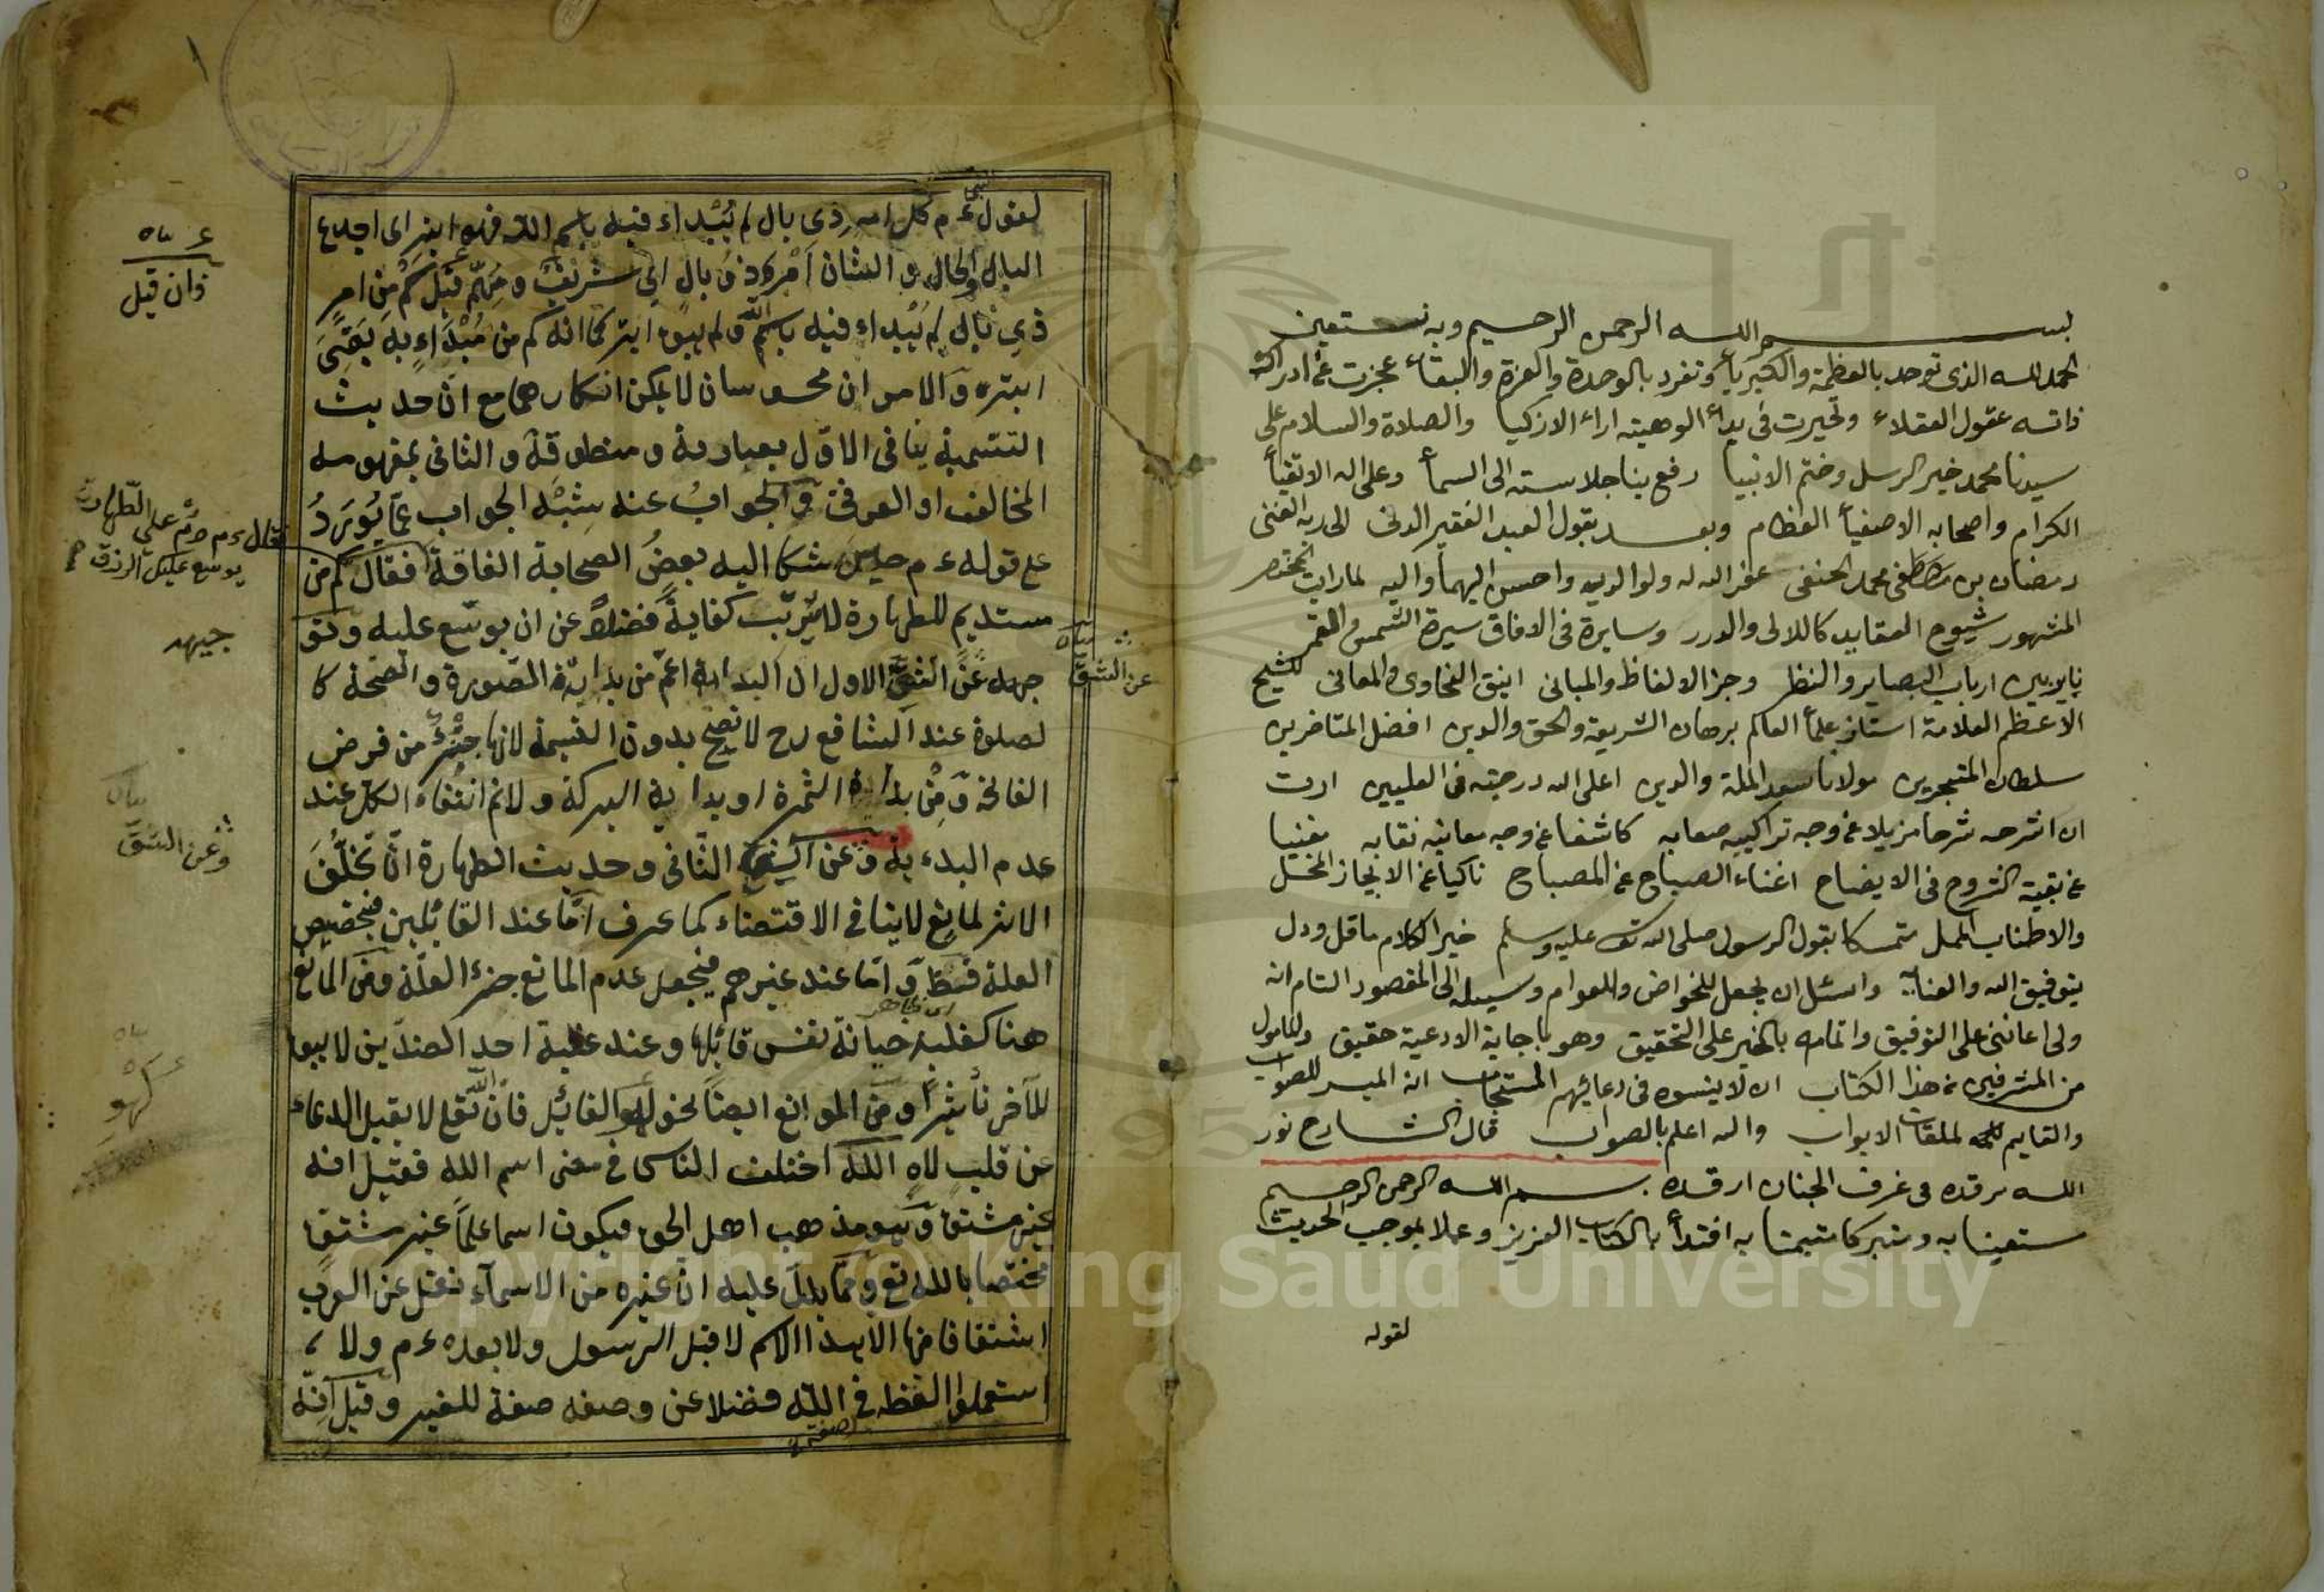 بسم الله الرحمن الرحيم وبه نستعين
الحمد لله الذى توحد بالعظمة والكبرياء وتفرد بالوحدة والعزة والبقاء عجزت عن ادراك
ذاته عقول العقلاء وتحيرت فى بيداء الوهيته اراء الازكيا والصلاة والسلام على
سيدنا محمد خير الرسل وختم الانبيا رفع بنا جلاسته الى السماء وعلى اله الاتقياء
الكرام واصحابه الاصفياء العظام وبعد يقول العبد الفقير الدنى الى ربه الغنى
رمضان بن مصطفى محمد الحنفى عفر الله له ولوالديه واحسن اليهما واليه لما رايت المختصر
المشهور شيوح العقايد كاللالى والدرر وسايرة فى الافاق سيرة الشمس والقمر
ارباب البصاير والنظر وجز الالفاظ والمبانى انيق الفحاوى والمعانى للشيخ
الاعظم العلامة استاذ علماء العالم برهان الشريعة والحق والدين افضل المتاخرين
سلطان المتبحرين مولانا سعد الملة والدين اعلى الله درجته فى العليين اردت
ان اشرحه شرحا مزيلا عن وجه تراكيبه صعابه كاشفا عن وجه معانيه نقابه مغنيا
عن بقية الشروح فى الايضاح اغناء الصباح عن المصباح ناكبا عن الايجاز المخل
والاطناب الممل متمسكا بقول الرسول صلى الله عليه وسلم خير الكلام ما قل ودل
بتوفيق الله والعناية واسئل ان يجعل للخواص وللعوام وسيلة الى المقصود التام انه
ولى اعاننى على التوفيق واتمامه بالخير على التحقيق وهو باجابة الادعية حقيق والمامول
من المشرفين من هذا الكتاب ان لا ينسوه فى دعائهم المستجاب انه الميسر للصواب
والقايم لملقات الابواب والله اعلم بالصواب قال الشارح نور
الله مرقده فى غرف الجنان ارقده بسم الله الرحمن الرحيم
مستعينا به ومتبركا متيمنا به اقتداء بالكتاب العزيز وعملا بموجب الحديث
لقوله
لقوله ء م كل امر ذى بال لم يبداء فيه باسم الله فهو ابتر اى اجدع
البال والحال والشان امر ذو بال اى شريف ومهم قيل كم من امر
ذى بال لم يبداء فيه باسم الله ولم يبق ابتر كما انه كم من مبداء به يبقى
ابتر والامران محسوسان لا يمكن انكارهما مع ان حديث
التسمية ينافى الاول بعبارته ومنطوقه والثانى بمفهومه
المخالف او العرفى والجواب عنه شبه الجواب عما يورد
على قوله ء م حين شكا اليه بعض الصحابة الفاقة فقال كم من
مستديم للطهارة لا يترتب كفاية فضلا عن ان يوسع عليه
جهله عن الشق الاول ان البداية اعم من بداية الصورة والصحة كا
لصلوة عند الشافع رح لا تصح بدون التسمية لانها جزء من فرض
الفاتحة ومن بداية الثمرة او بداية البركة ولا نم انتفاء الكل عند
عدم البدء به وعن الشق الثانى وحديث الطهارة ان تخلف
الاثر لمانع لا ينافى الاقتضاء كما عرف اما عند القائلين بتخصيص
العلة فقط واما عند غيرهم فيجعل عدم المانع جزء العلة ومن المانع
هنا كغلبة خيانة نفس قائلها وعند غلبة احد الضدين لا يبقى
للآخر تأثيرا ومن الموانع ايضا نحو لهو القائل فان الله تع لا يقبل الدعاء
عن قلب لاه الله اختلف الناس فى معنى اسم الله فقيل انه
غير مشتق وهو مذهب اهل الحق فيكون اسما علما غير مشتق
مختصا بالله تع ومما يدل عليه ان غيره من الاسماء نقل عن العرب
اشتقاقا منها الا هذا الاسم لا قبل الرسول ولا بعده ء م ولا
استعملوا لفظه فى الله فضلا عن وصفه صفة للغير وقيل انه
فان قيل
قال ء م دم على الطهارت
يوسع عليك الرزق
جيهد
عن الشق
بيان
وعن الشق
كهو
صفة